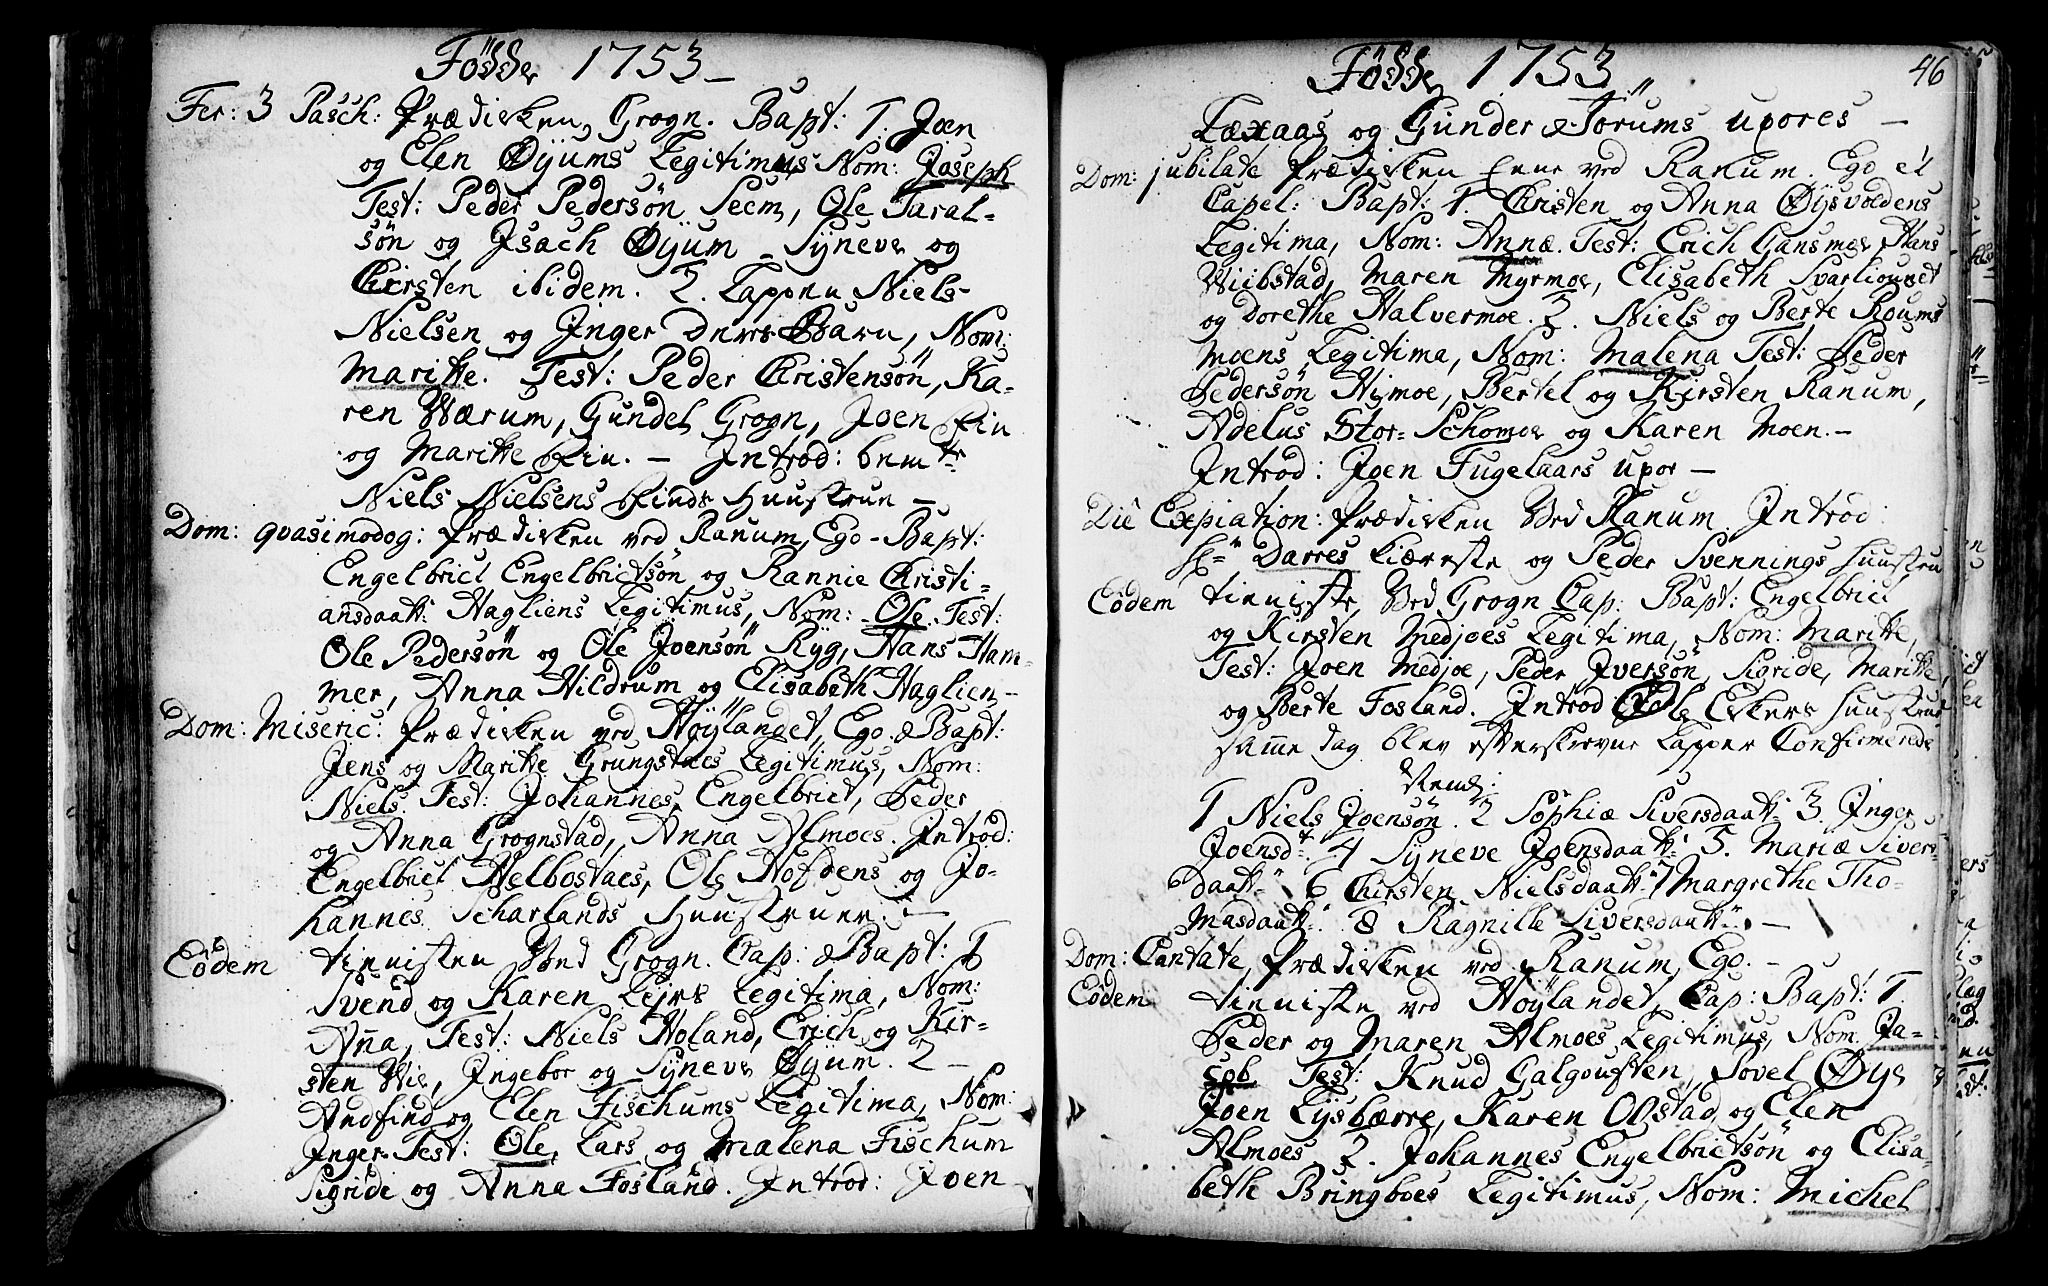 Födde 1753
Fer: 3 Pasch: Prædiken, Grogn. Bapt: 1. Joen
og Elen Øyums Legitimus Nom: Joseph
Test: Peder Pedersön Seem, Ole Taral-
sön og Jsach Øyum Syneve og
Chirsten ibidem. 2. Lappen Niels
Nielsen og Jnger Barn, Nom:
Maritte. Test: Peder Christensön, Ka-
ren Wærum, Gundel Grogn, Joen Lin
og Maritte Lin. – Jntrod: bemte
Niels Nielsens Huustrue –
Dom: qvasimodog: Prædiken ved Ranum, Ego – Bapt:
Engelbrict Engelbrictsön og Rannie Christi-
ansdaatt: Hagliens Legitimus, Nom: Ole. Test:
Ole Pedersön og Ole Joensön Ryg, Hans Ham-
mer, Anna Hildrum og Elisabeth Haglien –
Dom: Miseric: Prædiken ved Höylandet, Ego. & Bapt:
Jens og Maritte Grungstaes Legitimus, Nom:
Niels Test: Johannes, Engelbrict, Peder
og Anna Grognstad, Anna Almoes. Jntrod:
Engelbrict Helbostaes, Ole Hofdens og Jo-
hannes Scharlands Huustruer. –
Eodem tieniisten Ved Grogn. Cap: & Bapt: 1
Svend og Karen Lejrs Legitima, Nom:
Anna, Test: Niels Holand, Erich og Kir-
sten Wie, Jngebor og Syneve Øyum. 2 –
Andfind og Elen Fischums Legitima, Nom:
Jnger Test: Ole, Lars og Malena Fischum
Sigride og Anna Fosland. Jntrod: Joen
Födde 1753
46
Laxaas og Gunder Törums uxores –
Dom: jubilate Prædiken ved Ranum. Ego et
Capel: Bapt: 1. Christen og Anna Øysvoldens
Legitima, Nom: Annæ. Test: Erich Gansmoe, Hans
Wiibstad, Maren Myrmoe, Elisabeth
og Dorethe Halvermoe. 2. Niels og Berte Roums
moens Legitima, Nom: Malena Test: Peder
Pedersön Hymoe, Bertel og Kirsten Ranum,
Adelus Stor-Schomoe og Karen Moen. –
Jntrod: Joen Fugelaars uxor –
Die Expiation: Prædiken Ved Ranum. Jntrod:
Hr Darres kiæreste og Peder Svennings huustru
Eodem tieniiste, Ved Grogn Cap: Bapt: Engelbrict
og Kirsten Medjoes Legitima, Nom: Maritte,
Test: Joen Medjoe, Peder Jversön, Sigride, Maritte,
og Berte Fosland. Jntrod Ole Ekers huustrue
samme dag blev efterskrevne Lapper Confirmerede
1 Niels Joensön. 2 Sophiæ Siversdaatt: 3. Jnger
Joensd: 4 Syneve Joensdaatt: 5. Mariæ Sivers-
daatt: 6 Chirsten Nielsdaatt: 7 Margrethe Tho-
masdaatt: 8 Ragnille Siversdaatt: –
Dom: Cantate, Prædiken ved Ranum, Ego. –
Eodem tieniiste ved Höylandet, Cap: Bapt: 1.
Peder og Maren Almoes Legitimus, Nom. Ja-
cob Test: Knud Galgouften, Sovel Øye
Joen Lysbærre, Karen Olstad og Elen
Almoes. 2. Johannes Engelbrictsön og Elisa-
beth Bringboes Legitimus, Nom: Michel